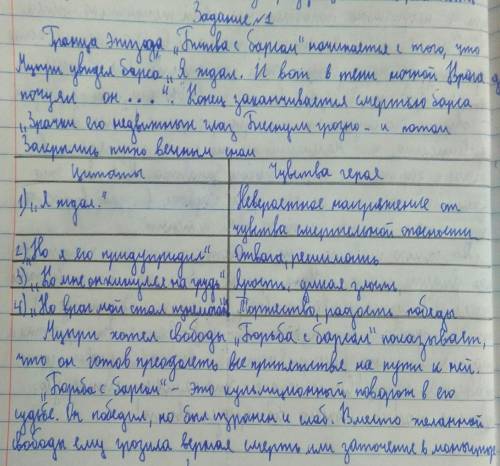 Задание №1
Граница эпизода „Битва с барсом" начинается с того, что
Мцыри увидел барса „Я ждал. И вот в тени ночной Врага
почуял он ....". Конец заканчивается смертью барса
„Зрачки его недвижных глаз Блеснули грозно - и потом
Закрылись тихо вечным сном
Цитаты Чувства героя
1) „Я ждал." Невероятное напряжение от
чувства смертельной опасности
2) „Но я его предупредил" Отвага, решимость
3) „Ко мне он кинулся на грудь" Ярость, дикая злость
4) „Но враг мой стал изнемогать" Торжество, радость победы
Мцыри хотел свободы „Борьба с барсом" показывает,
что он готов преодолеть все препятствие на пути к ней.
„Борьба с барсом" - это кульмиционный поворот в его
судьбе. Он победил, но был изранен и слаб. Вместо желанной
свободы ему грозила верная смерть или заточение в монастыре